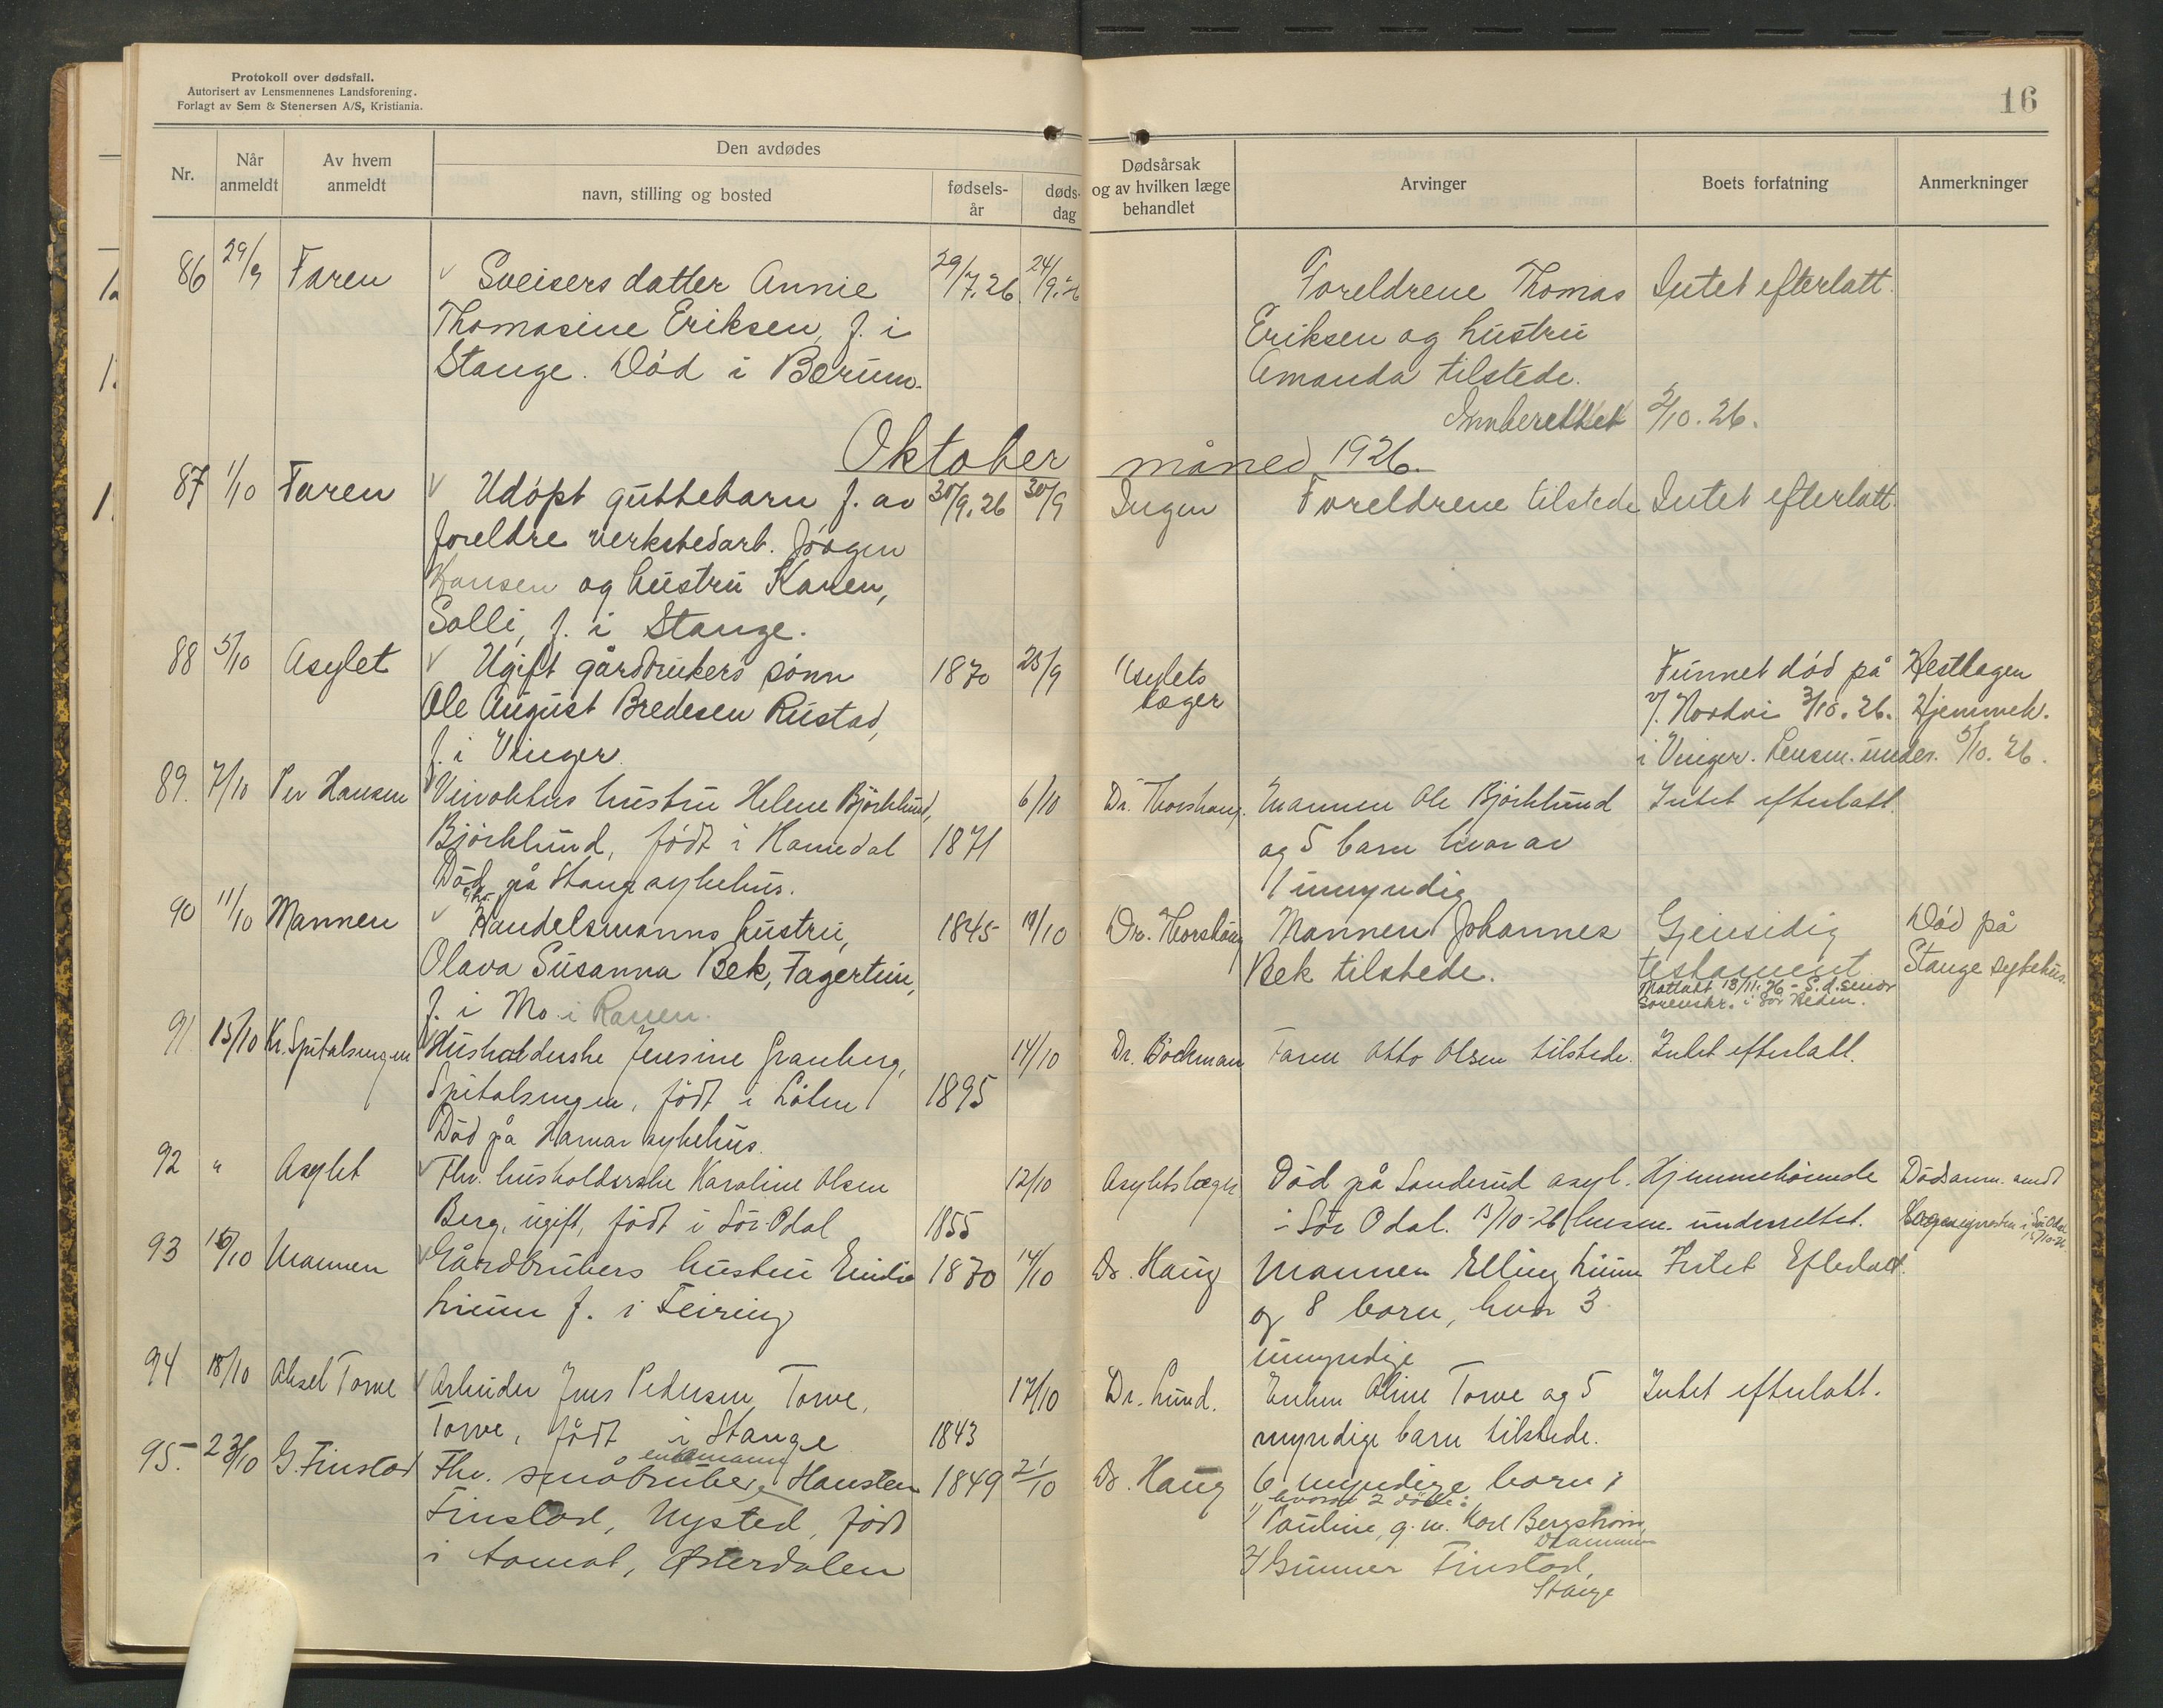 Protokoll over dødsfall.
Autorisert av Lensmennenes Landsforening.
Forlagt av Sem & Stenersen A/S, Kristiania.
16
Nr.
Når anmeldt
Av hvem anmeldt
Den avdødes
navn, stilling og bosted
fødsels-år
døds-dag
Dødsårsak og av hvilken læge behandlet
Arvinger
Boets forfatning
Anmerkninger
86 29/9 Faren Sveisers datter Annie 29/7.26 24/9.26 Foreldrene Thomas Intet efterlatt.
Thomasine Eriksen, f. i Eriksen og hustru
Stange. Död i Bærum. Amanda tilstede.
Innberettet 2/10.26.
Oktober måned 1926.
87 1/10 Faren Udöpt guttebarn f. av 30/9.26 30/9 Ingen Foreldrene tilstede Intet efterlatt.
foreldre verkstedarb. Jörgen
Hansen og hustru Karen,
Solli, f. i Stange.
88 5/10 Asylet Ugift gårdbrukers sönn 1870 25/9 Asylets Funnet död på Hesthagen
Ole August Bredesen Rustad, læger v/. Nordvi 3/10.26. Hjemmeh.
f. i Vinger. i Vinger. Lensm. under. 5/10.26.
89. 7/10 Per Hansen Veivokters hustru Helene Björklund, 6/10 Dr. Thorshaug. Mannen Ole Björklund Intet efterlatt.
Björklund, födt i 1871 og 5 barn hvorav
Död på Stange sykehus. 1 umyndig
90 11/10 Mannen Handelsmanns hustru, 1845 10/10 Dr. Thorshaug Mannen Johannes Gjensidig Död på
Olava Susanna Bek, Fagertun, Bek tilstede. testament Stange sykehus.
f. i Mo i Ranen. Mottatt 13/11.26 - S.d. sendt
Sorenskr. i Sör Hedm.
91 15/10 Kr. Spitalsengen Husholderske Jensine Granberg, 14/10 Dr. Böckman Faren Otto Olsen tilstede. Intet efterlatt.
Spitalsengen, födt i Löten 1895
Död på Hamar sykehus.
92 " Asylet Fhv. husholderske Karoline Olsen 12/10 Asylets læger Död på Sanderud asyl. Hjemmehörende Dödsanm. sendt
Berg, ugift, födt i Sör-Odal 1855 i Sör Odal. 15/10-26 lensm. underrettet. i Sör Odal 15/10-26
93 16/10 Mannen Gårdbrukers hustru Emilie 1870 14/10 Dr. Haug Mannen Elling Linn Intet Efterlatt.
Linn f. i Feiring og 8 born, hvor 3
umyndige
94 18/10 Aksel Torve Arbeider Jens Pedersen Torve, 17/10 Dr. Lund. Enken Oline Torve og 5 Intet efterlatt.
Torve, födt i Stange 1843 myndige barn tilstede.
95. 23/10 G. Finstad Fhv. småbruker, enkemann Hansten 1849 21/10 Dr. Haug 6 myndige born,
Finstad, Nysted, födt hvorav 2 döde:
i Aamot, Østerdalen 1/ Pauline, g.m. Karl Bergström,
Drammen
2/ Gunner Finstad,
Stange